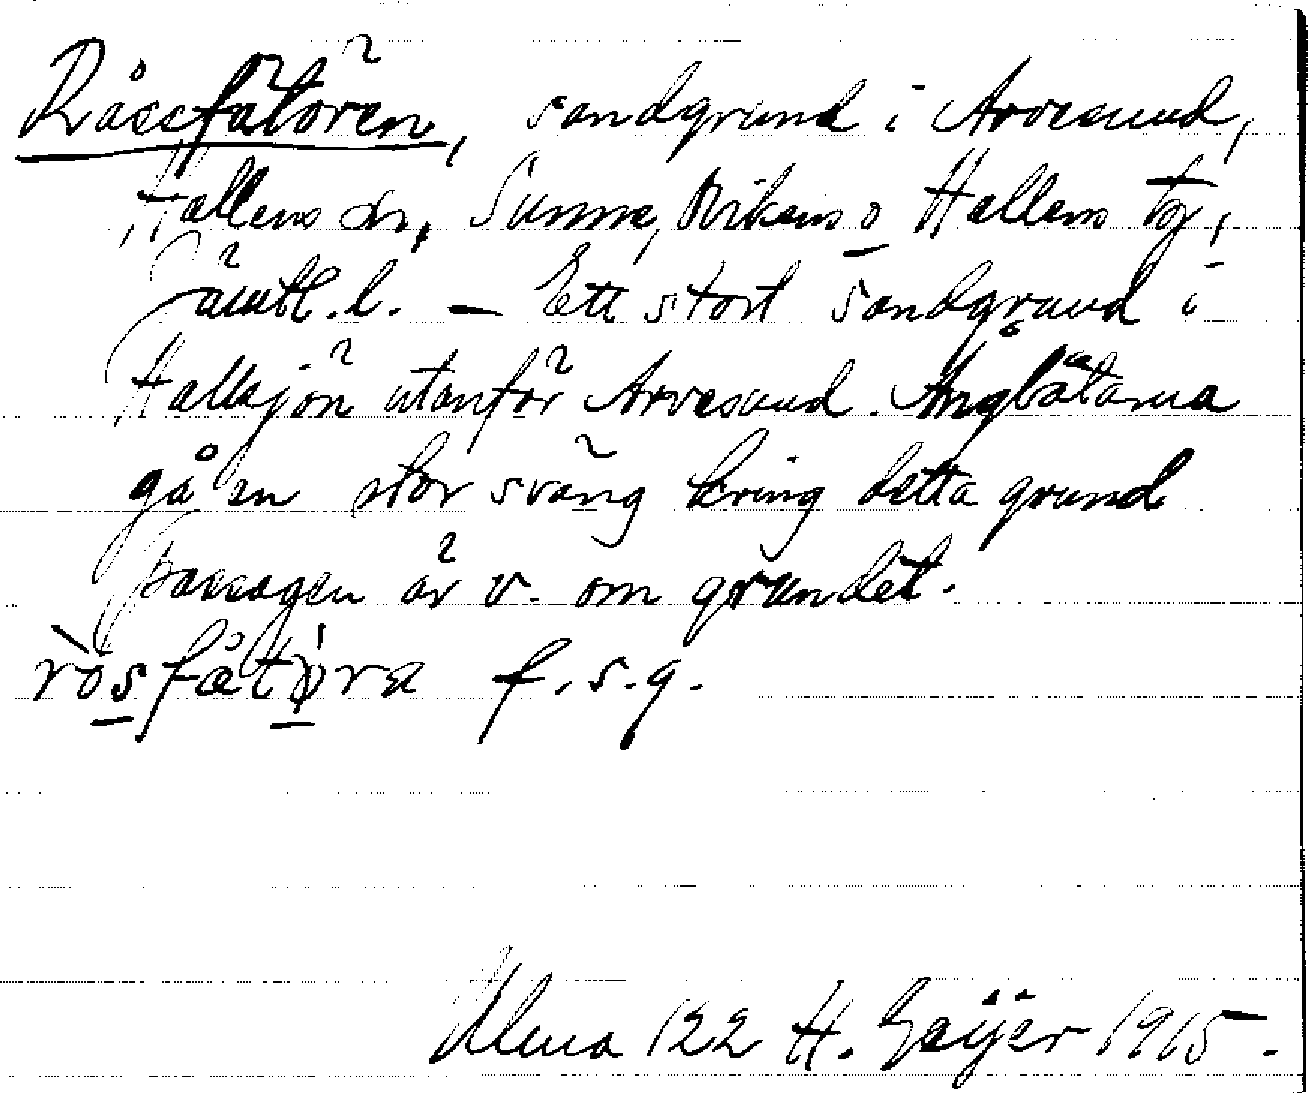 Råssfätören, sandgrund i Arvesund,
Hallens sn, Sunne, Ovikens o Hallens tg,
Jämtl.l. – Ett stort sandgrund i
Hallsjön utanför Arvesund. Ångbåtarna
gå en stor sväng kring detta grund
passagen är v. om grundet.
f.s.g.
Ulma 122 H. Geijer 1915.